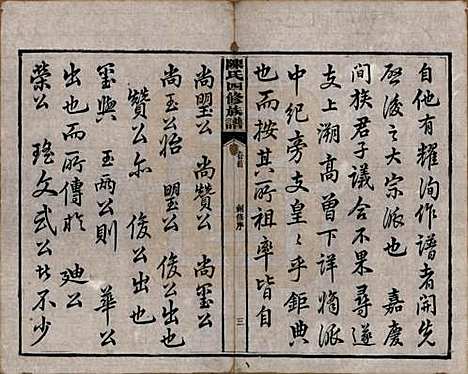 自他有耀洵作譜者開先
啓後之大宗派也　嘉慶
間族君子議合不果尋遂
支上溯高曾下詳嫡派
中紀旁支皇皇乎鉅典
也而按其所祖率皆自
陳氏四修族譜
卷首
創修序
三
尚璽公　尚贊公　尚璽公
尚玉公怡　璽公　俊公出也
贊公亦　俊公出也
璽與　玉兩公則　華公
出也而所傳於　迪公
榮公　瑤文武公者不少